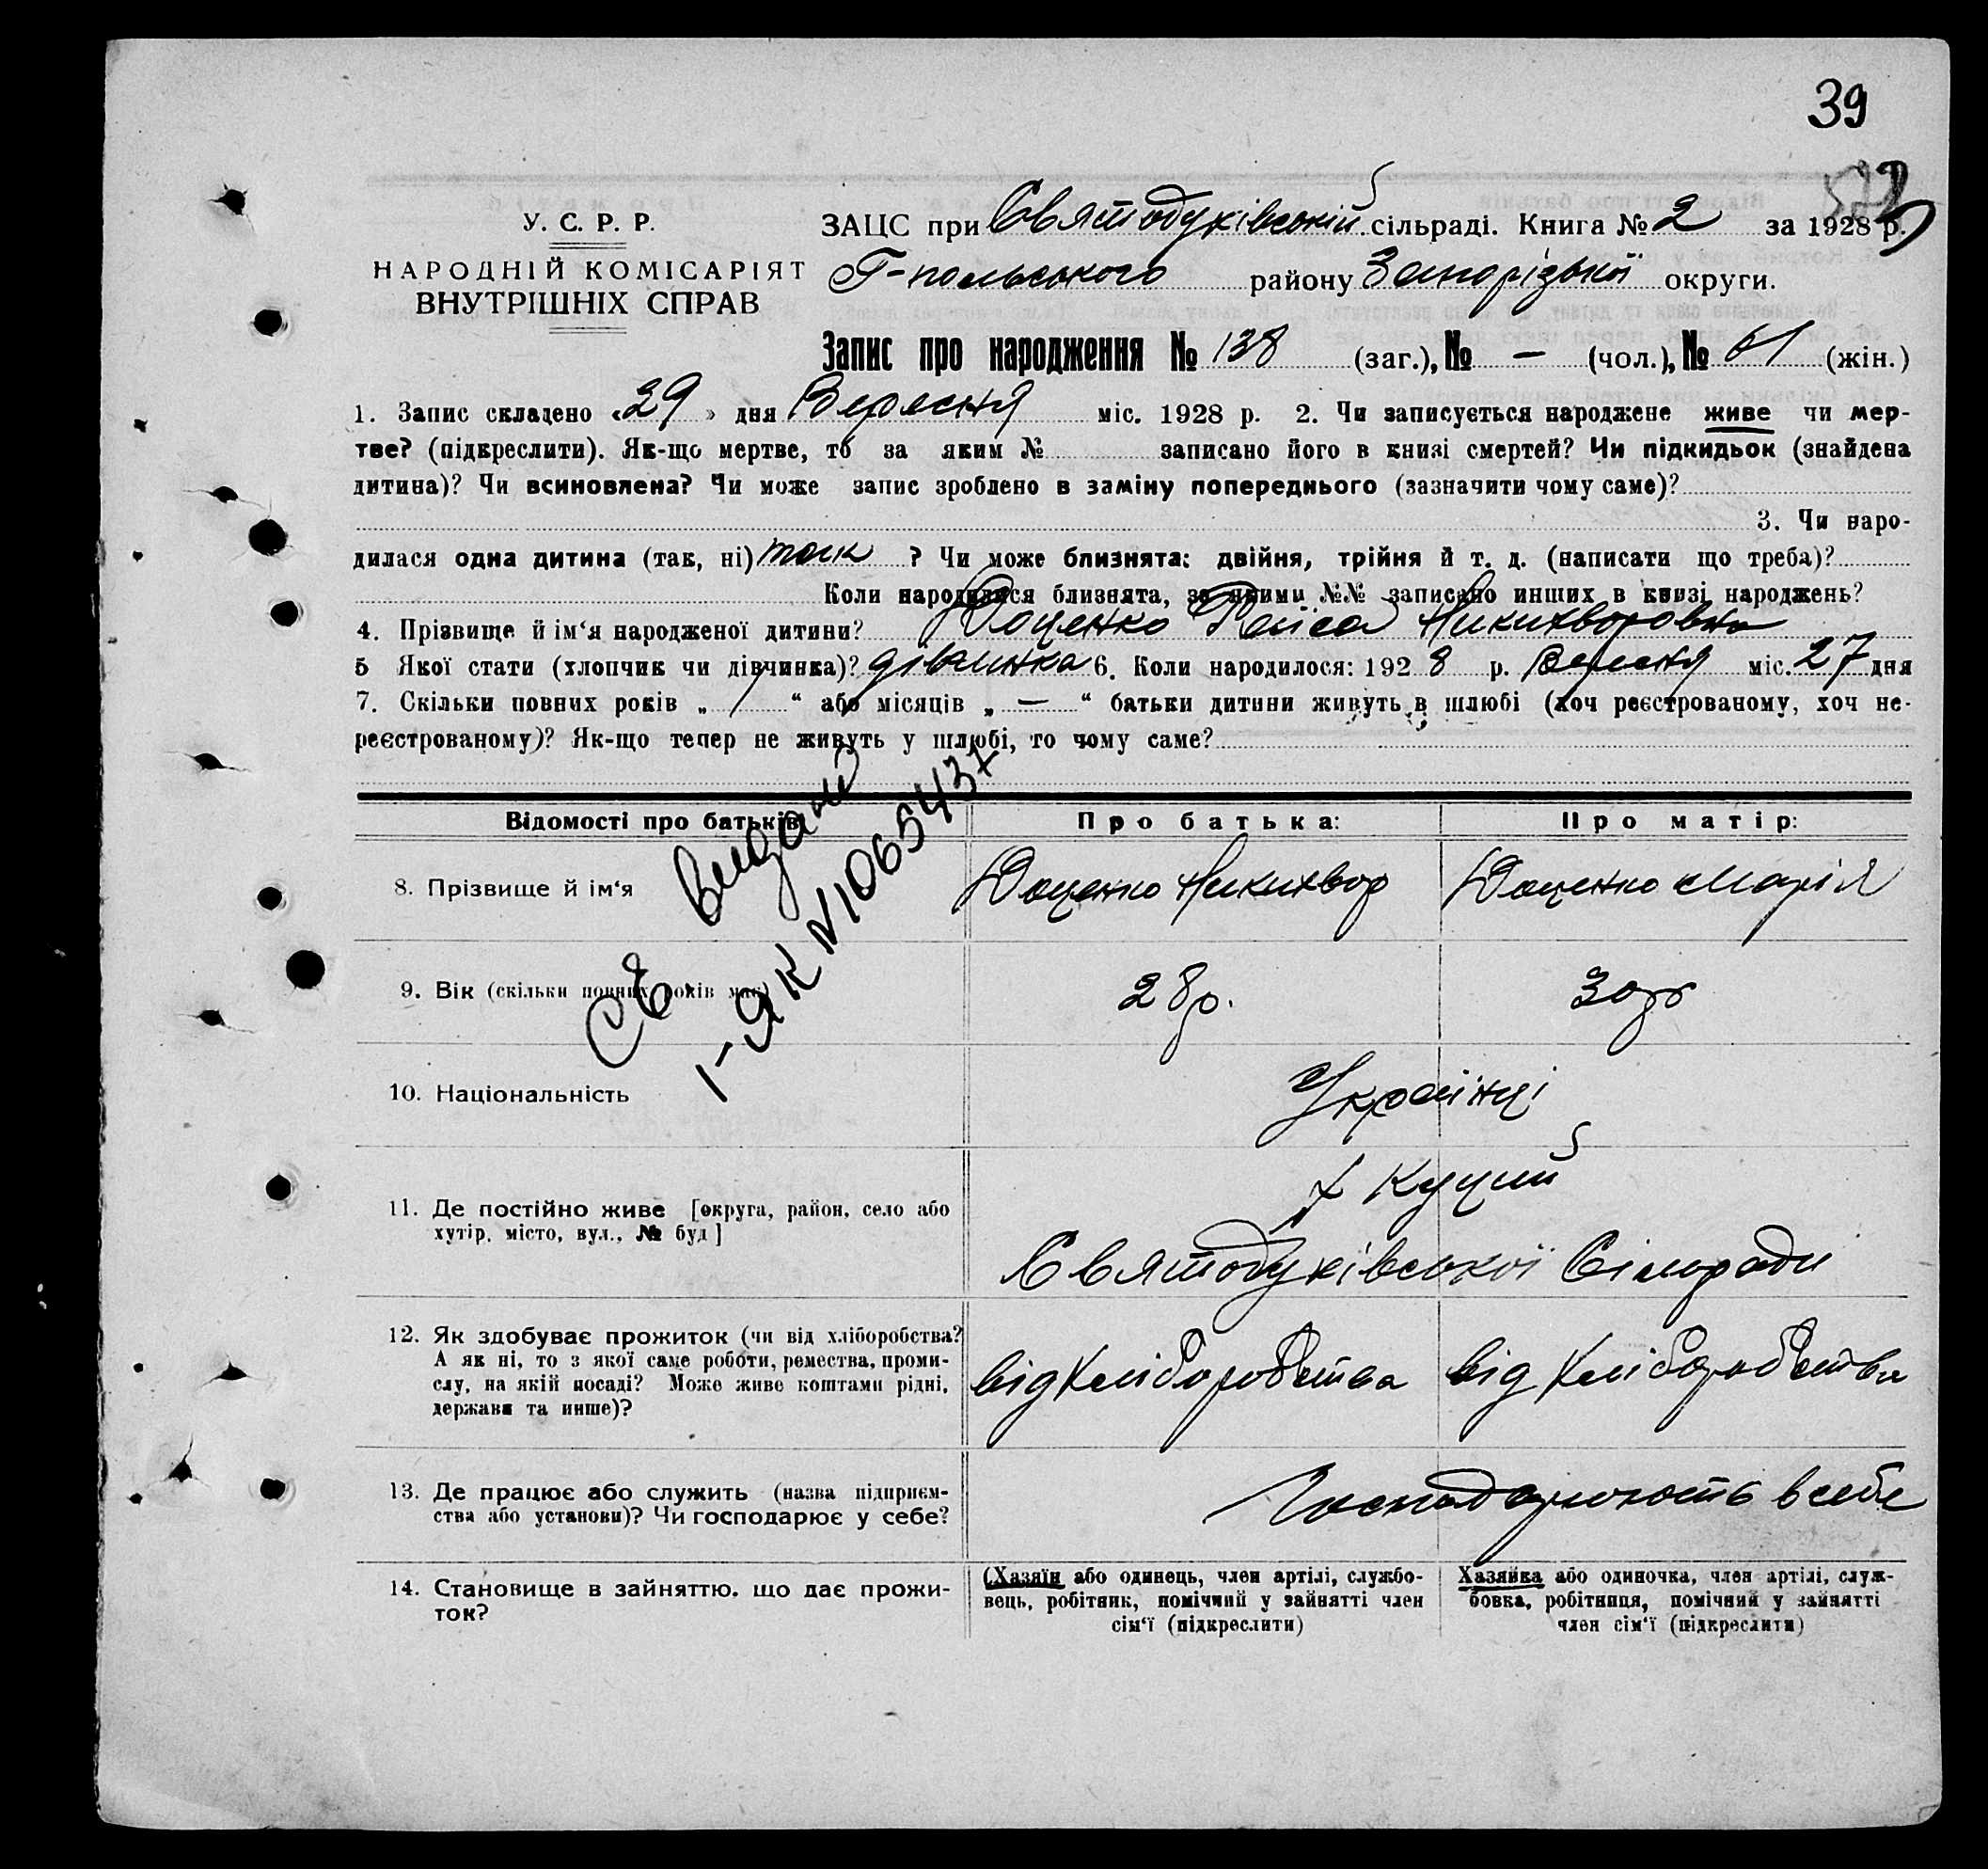 39
У. С. Р. Р.
НАРОДНІЙ КОМІСАРІЯТ
ВНУТРІШНІХ СПРАВ
ЗАЦС при Святодухівській сільраді. Книга № 2 за 1928 р.
Г-польського району Запорізької округи.
Запис про народження № 138 (заг.), № — (чол.), № 61 (жін.)
1. Запис складено «29» дня Вересня міс. 1928 р. 2. Чи записується народжене живе чи мер-
тве? (підкреслити). Як-що мертве, то за яким № записано його в книзі смертей? Чи підкидьок (знайдена
дитина)? Чи всиновлена? Чи може запис зроблено в заміну попереднього (зазначити чому саме)?
3. Чи наро-
дилася одна дитина (так, ні) так ? Чи може близнята: двійня, трійня й т. д. (написати що треба)?
Коли народилися близнята, за якими №№ записано инших в книзі народжень?
4. Прізвище й ім‘я народженої дитини? Доценко Раїса Никихворовна
5 Якої стати (хлопчик чи дівчинка)? дівчинка 6. Коли народилося: 1928 р. Вересня міс. 27 дня
7. Скільки повних років „ 1 “ або місяців „ — “ батьки дитини живуть в шлюбі (хоч реєстрованому, хоч не-
реєстрованому)? Як-що тепер не живуть у шлюбі, то чому саме?
Відомості про батьків
Про батька:
Про матір:
8. Прізвище й ім‘я
Доценко Никихвор
Доценко Марія
9. Вік (скільки повних років має)
28р.
30р
10. Національність
Українці
11. Де постійно живе [округа, район, село або
хутір, місто, вул., № буд]
х Куций
Святодухівської Сільради
12. Як здобуває прожиток (чи від хліборобства?
А як ні, то з якої саме роботи, ремества, проми-
слу, на якій посаді? Може живе коштами рідні,
держави та инше)?
від Хліборобства
від Хліборобства
13. Де працює або служить (назва підприєм-
ства або установи)? Чи господарює у себе?
Господарюють в себе
14. Становище в зайняттю, що дає прожи-
ток?
(Хазяїн або одинець, член артілі, службо-
вець, робітник, помічний у зайнятті член
сім‘ї (підкреслити)
Хазяйка або одиночка, член артілі, служ-
бовка, робітниця, помічний у зайнятті
член сім‘ї (підкреслити)